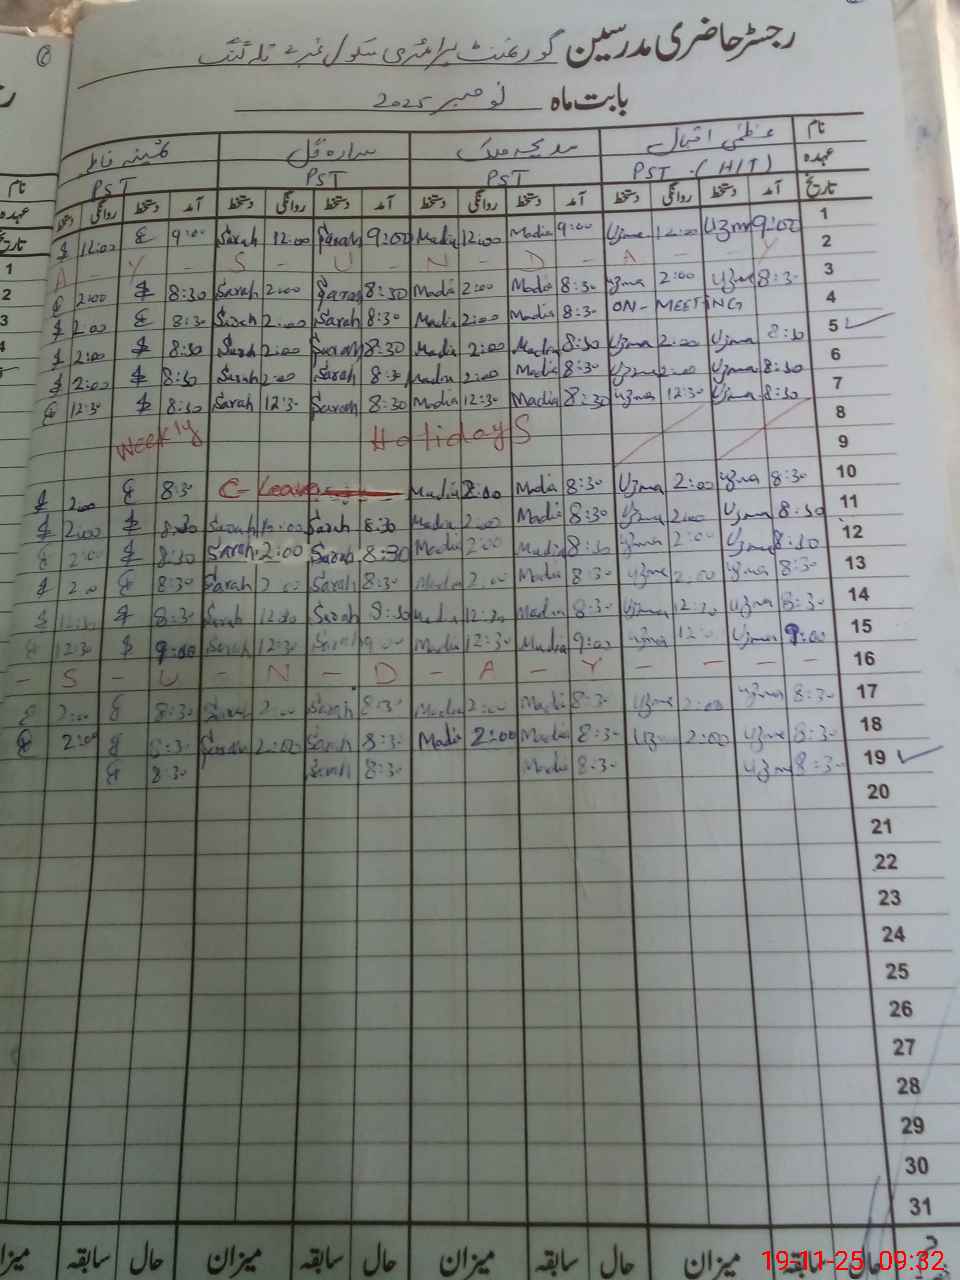 رجسٹر حاضری مدرسین گورنمنٹ پرائمری سکول نمبر 2 تلہ گنگ
بابت ماہ نومبر 2025
نام عظمیٰ اقبال مدیحہ ملک سارہ گل ثمینہ فاطمہ
عہدہ PST (HIT) PST PST PST
تاریخ آمد دستخط روانگی دستخط آمد دستخط روانگی دستخط آمد دستخط روانگی دستخط آمد دستخط روانگی دستخط
1 9:00 Uzma 12:00 Uzma 9:00 Madia 12:00 Madia 9:00 Sarah 12:00 Sarah 9:00 12:00
2 S - U - N - D - A - Y
3 8:30 Uzma 2:00 Uzma 8:30 Madia 2:00 Madia 8:30 Sarah 2:00 Sarah 8:30 2:00
4 ON - MEETING 8:30 Madia 2:00 Madia 8:30 Sarah 2:00 Sarah 8:30 2:00
5 8:30 Uzma 2:00 Uzma 8:30 Madia 2:00 Madia 8:30 Sarah 2:00 Sarah 8:30 2:00
6 8:30 Uzma 2:00 Uzma 8:30 Madia 2:00 Madia 8:30 Sarah 2:00 Sarah 8:30 2:00
7 8:30 Uzma 12:30 Uzma 8:30 Madia 12:30 Madia 8:30 Sarah 12:30 Sarah 8:30 12:30
8 Weekly Holidays
9
10 8:30 Uzma 2:00 Uzma 8:30 Madia 2:00 Madia C-Leave 8:30 2:00
11 8:30 Uzma 2:00 Uzma 8:30 Madia 2:00 Madia 8:30 Sarah Sarah 8:30 2:00
12 8:30 Uzma 2:00 Uzma 8:30 Madia 2:00 Madia 8:30 Sarah 2:00 Sarah 8:30 2:00
13 8:30 Uzma 2:00 Uzma 8:30 Madia 2:00 Madia 8:30 Sarah 2:00 Sarah 8:30 2:00
14 8:30 Uzma 12:30 Uzma 8:30 Madia 12:30 Madia 8:30 Sarah 12:30 Sarah 8:30 12:30
15 9:00 Uzma Uzma 9:00 Madia 12:30 Madia 9:00 Sarah 12:30 Sarah 9:00 12:30
16 - S - U - N - D - A - Y - - - -
17 8:30 Uzma 2:00 Uzma 8:30 Madia 2:00 Madia 8:30 Sarah 2:00 Sarah 8:30 2:00
18 8:30 Uzma 2:00 Uz 8:30 Madia 2:00 Madia 8:30 Sarah 2:00 Sarah 8:30 2:00
19 8:30 Uzma 8:30 Madia 8:30 Sarah 8:30
20
21
22
23
24
25
26
27
28
29
30
31
حال سابقہ میزان حال سابقہ میزان حال سابقہ میزان حال سابقہ میزان
19-11-25 09:32
نام
عہدہ
تاریخ
1
2
3
4